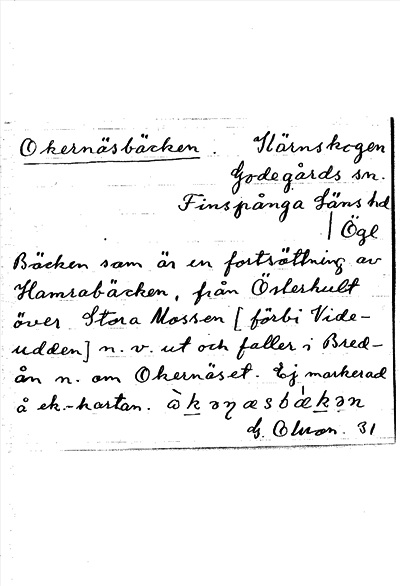 Okernäsbäcken. Kärnskogen
Godegårds sn.
Finspånga läns hd
Ögl
Bäcken som är en fortsättning av
Hamrabäcken, från Österhult
över Stora Mossen [förbi Vide-
udden] n. v. ut och faller i Bred-
ån n. om Okernäset. Ej markerad
å ek.-kartan.
G. Olson. 31